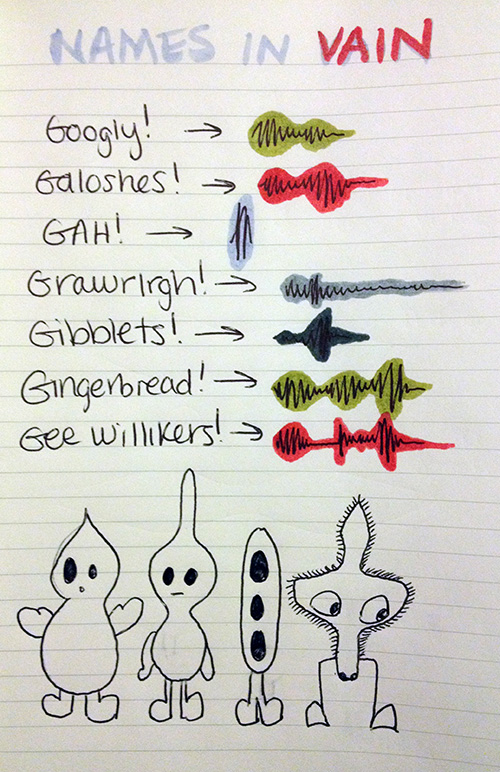 NAMES IN VAIN
Googly! →
Galoshes! →
GAH! →
Grawrlrgh! →
Gibblets! →
Gingerbread! →
Gee willikers! →